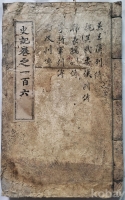 吳王濞列傳
魏其武安侯列傳
韓長孺列傳
李將軍列傳
匈奴列傳
史記卷之一百六